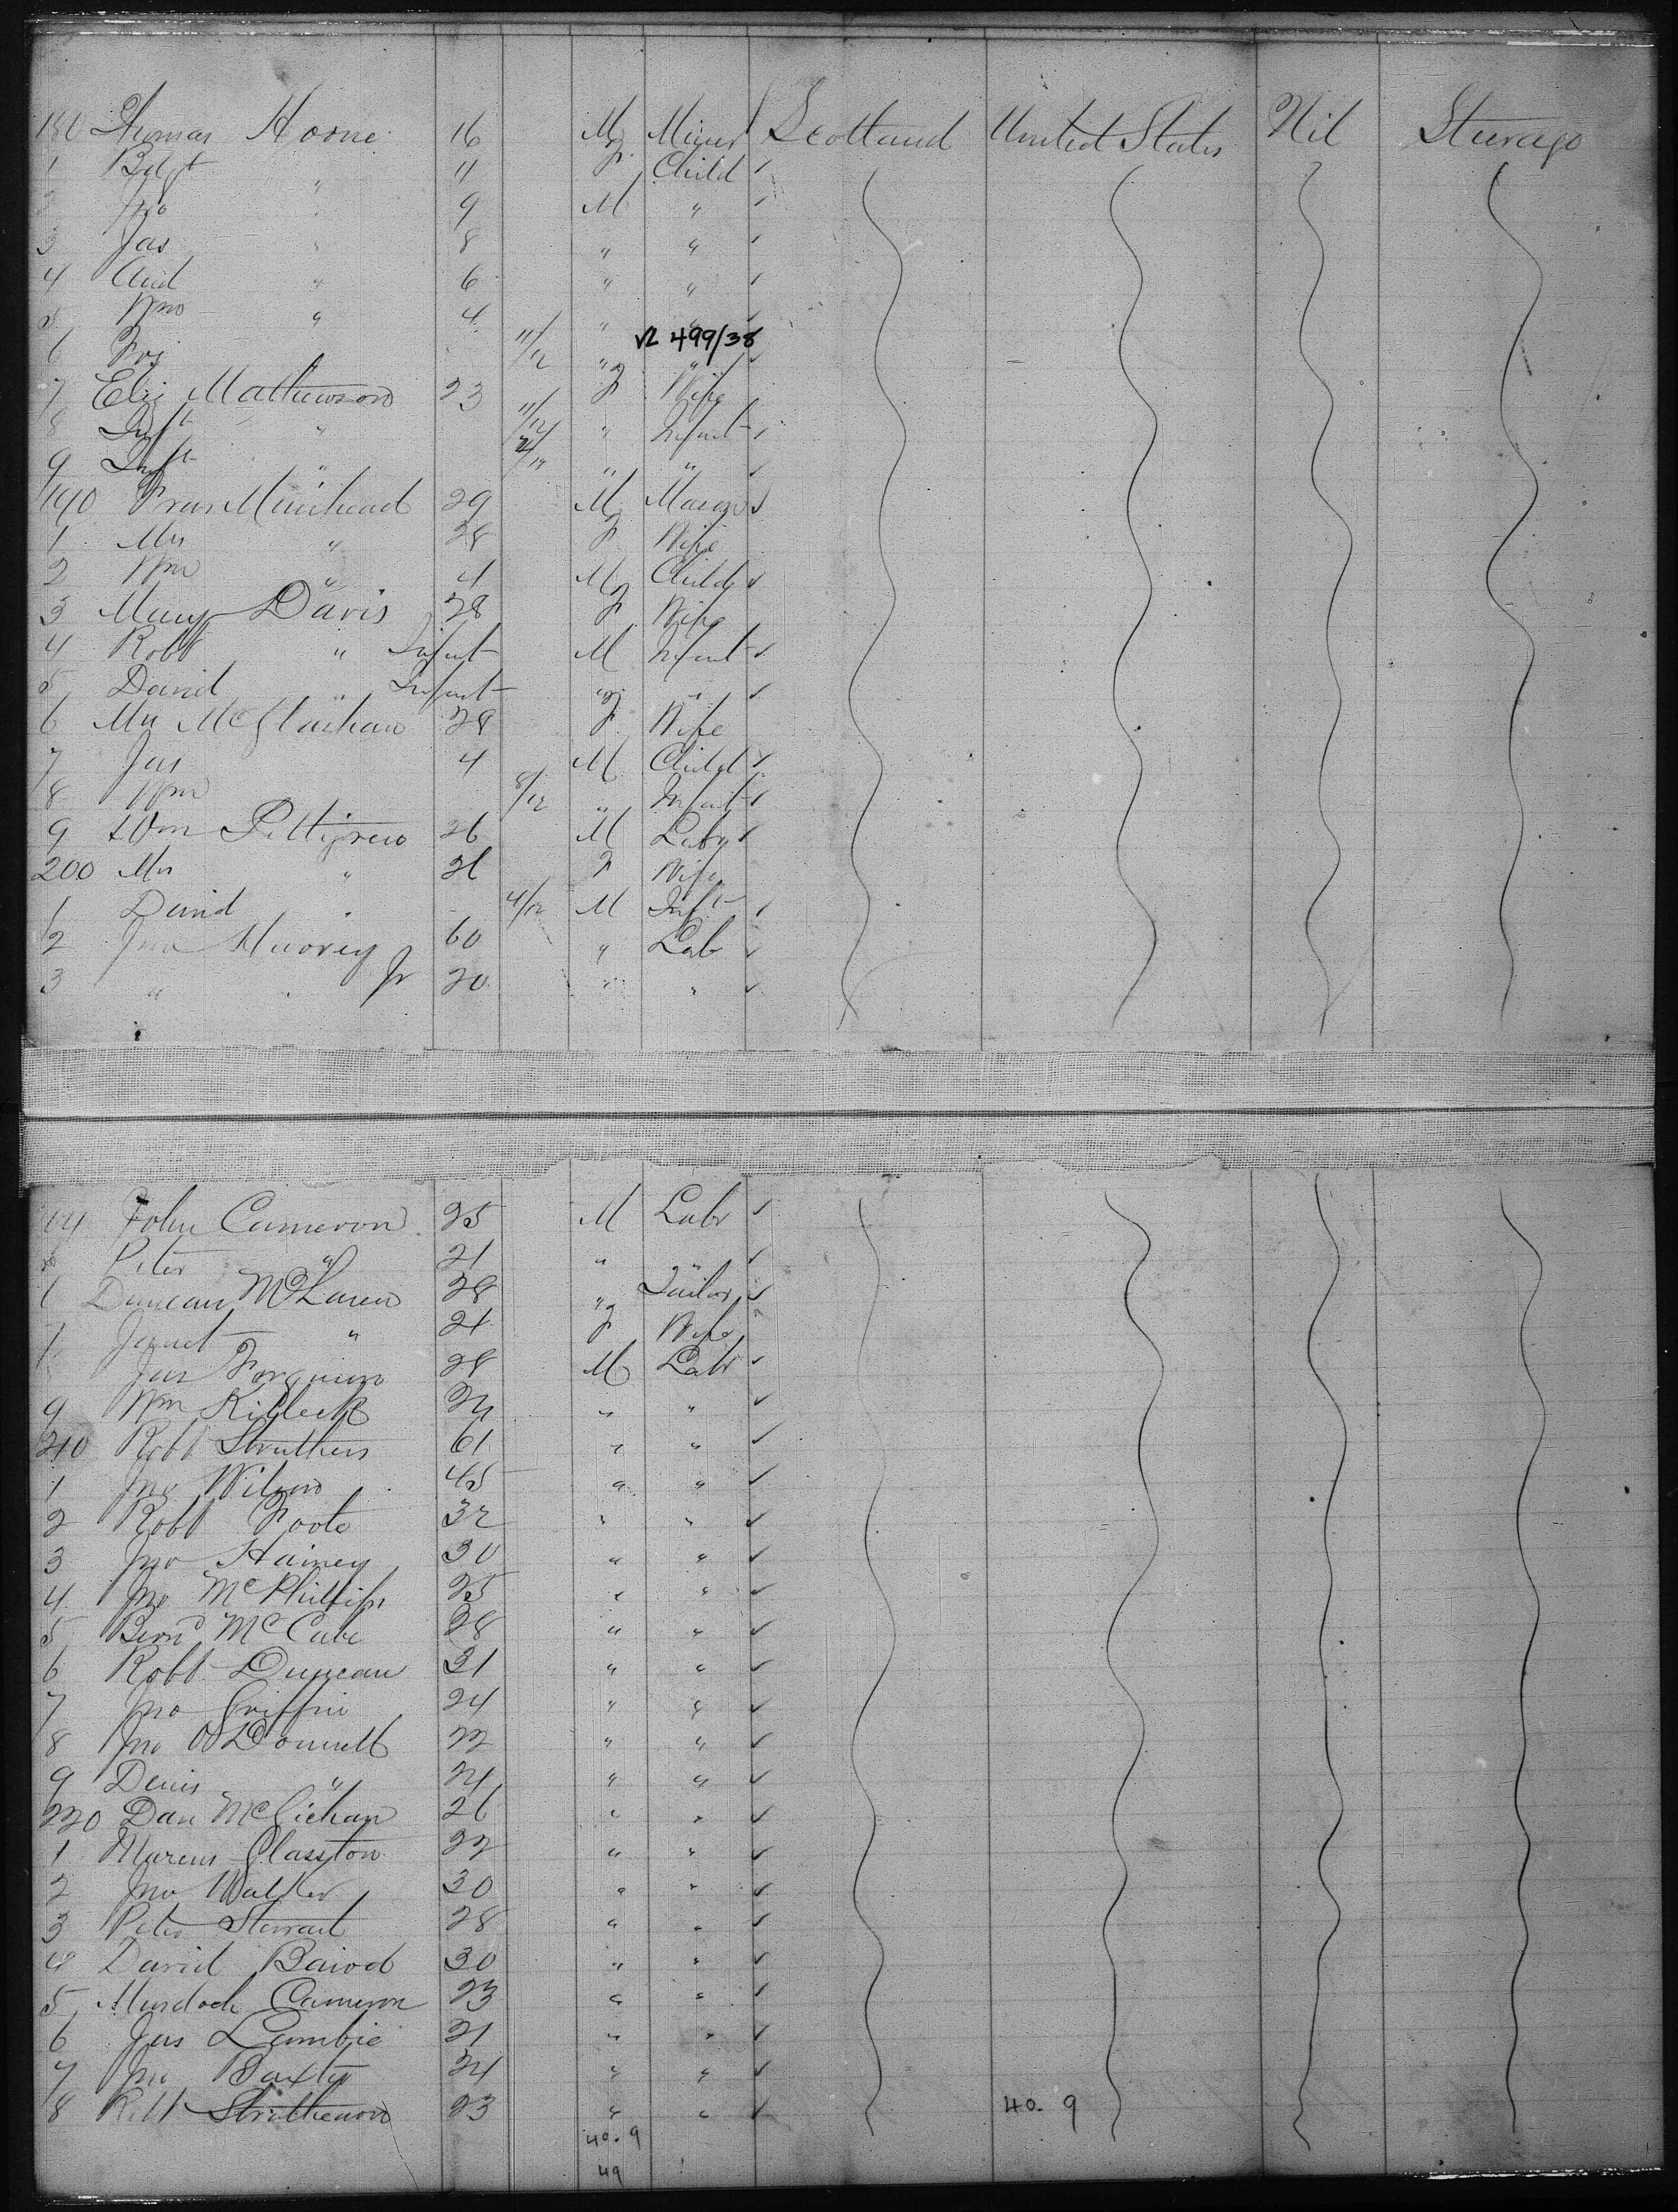 180 Thomas Hoone 16 M Miner Scotland United States Nil Steerage
1 Bdgt " 11 F Child
2 Jno " 9 M "
3 Jas " 8 " "
4 " 6 " "
5 Wm " 4 " "
6 11/12 " "
V2 499/38
7 Eliz Mathewson 23 F Wife
8 Inft " 11/12 " Infant
9 Inft " " "
190 Fran Muirhead 29 M Mason
1 Mrs " 28 F Wife
2 Wm " 4 M Child
3 Mary Davis 28 F Wife
4 Robt " Infant M Infant
5 David " Infant " "
6 Mrs McGlashan 28 F Wife
7 Jas 4 M Child
8 Wm 8/12 " Infant
9 Wm Pettigrew 26 M Labr
200 Mrs " 26 F Wife
1 David " 4/12 M Inft
2 Jno 60 " Lab
3 " Jr 20 " "
04 John Cameron 25 M Labr
5 Peter " 21 "
Duncan McLaren 28 " Tailor
7 Janet " 21 F Wife
Jas Ferguson 28 M Labr
9 Wm 24 " "
210 Robt Struthers 61 " "
1 Jno Wilson 45 " "
2 Robt Foote 32 " "
3 Jno Hainey 30 " "
4 Jno McPhillips 25 " "
5 Bernd McCabe 28 " "
6 Robt Duncan 31 " "
7 Jno Griffin 24 " "
8 Jno O'Donnell 22 " "
9 Denis " 24 " "
220 Dan McGichan 26 " "
1 Marcus Glasston 22 " "
2 Jno Walker 30 " "
3 Peter Stewart 28 " "
4 David Baird 30 " "
5 Murdoch Cameron 23 " "
6 Jas Lambie 21 " "
7 Jno Baxter 24 " "
8 Robt 23 " " 40. 9
40. 9
49